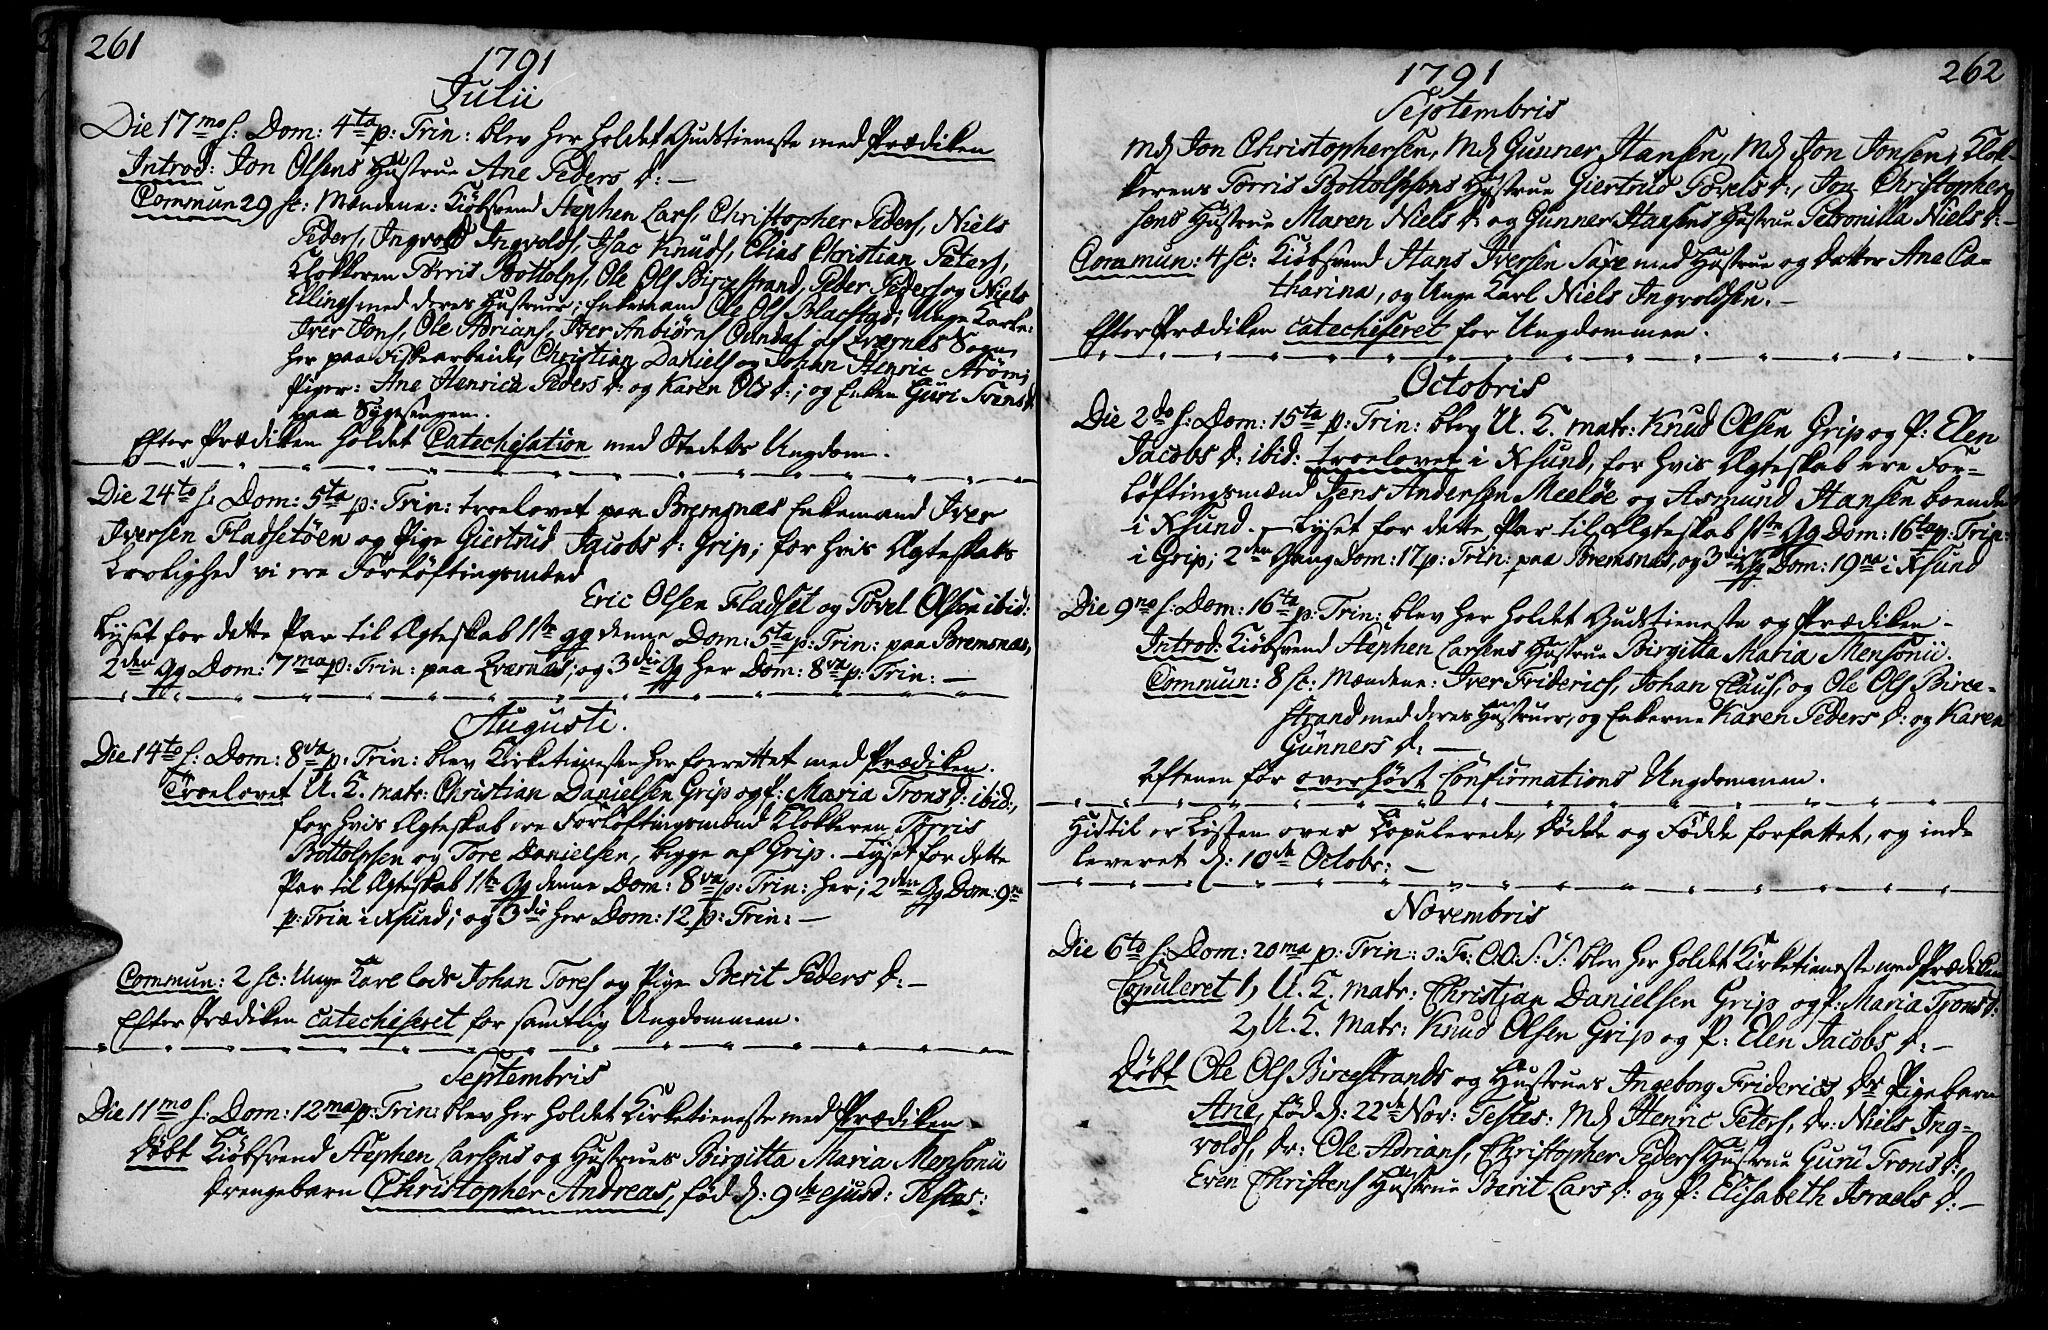 261
1791
Julii
Die 17mo s: Dom: 4ta p: Trin: blev her holdet Gudstieneste med Prædiken
Introd: Jon Olsens Hustrue Ane Peders D: —
Commun 29 st: Mændene: Kiöbsvend Stephen Lars, Christopher Peders, Niels
Peders, Ingvold Ingvolds, Isac Knuds, Elias Christian Peters,
Klokkeren Tørris Bottolps, Ole Ols Bircestrand, Peder Peders og Niels
Ellings med deres Hustruer; Enkemand Ole Ols Blachstad; Unge Karle:
Iver Jons, Ole Adrians, Iver Anbiørns af Qværnæs Sogn
her paa Fiskearbeide, Christian Daniels og Johan Henric Strøm;
Piger: Ane Henrica Peders D: og Karen Ols D:; og Enken Guri Svens D:
paa Sygesengen.
Efter Prædiken holdet Catechisation med Stedets Ungdom.
Die 24to s: Dom: 5ta p: Trin: troelovet paa Bremsnæs Enkemand Iver
Iversen Fladsetøen og Pige Giertrud Jacobs D: Grip; for hvis Ægteskabs
Lovlighed vi ere Forløftingsmænd
Eric Olsen Fladset og Povel Olsen ibid:
Lyset for dette Par til Ægteskab 1ste Gg denne Dom: 5ta p: Trin: paa Bremsnæs,
2den Gg Dom: 7ma p: Trin: paa Qværnæs; og 3die Gg her Dom: 8va p: Trin: —
Augusti.
Die 14to s: Dom: 8va p: Trin: blev Kirketienesten her forrettet med Prædiken.
Troelovet U. K. matr: Christian Danielsen Grip og P: Maria Trons D: ibid:,
for hvis Ægteskab ere Forløftingsmænd Klokkeren Tørris
Bottolpsen og Tore Danielsen, begge af Grip. — Lyset for dette
Par til Ægteskab 1ste Gg denne Dom: 8va p: Trin: her; 2den Gg Dom: 9na
p: Trin i Xsund; og 3die her Dom: 12 p: Trin: —
Commun: 2 st: Unge Karl Johan Tores og Pige Berit Peders D: —
Efter Prædiken catechiseret for samtlig Ungdommen.
Septembris
Die 11mo s: Dom: 12ma p: Trin: blev her holdet Kirketieneste med Prædiken
Døbt Kiöbsvend Stephen Larsens og Hustrues Birgitta Maria Mensonii
Drengebarn Christopher Andreas, fød d: 9de ejusd: Testes:
262
1791
Septembris
Md Jon Christophersen, Md Gunner Hansen, Md Jon Jonsen, Klok-
kerens Tørris Bottolpsens Hustrue Giertrud Povels D:, Jon Christopher-
sens Hustrue Maren Niels D: og Gunner Hansens Hustrue Petronilla Niels D: —
Commun: 4 st: Kiöbsvend Hans Iversen Saxe med Hustrue og Datter Ane Ca-
tharina, og Unge Karl Niels Ingvoldsen. —
Efter Prædiken catechiseret for Ungdommen.
Octobris
Die 2do s: Dom: 15ta p: Trin: blev U. K. matr: Knud Olsen Grip og P: Elen
Jacobs D: ibid: troelovet i Xsund, for hvis Ægteskab ere For-
løftingsmænd Jens Andersen Meeløe og Asmund Hansen boende
i Xsund. — Lyset for dette Par til Ægteskab 1ste Gg Dom: 16ta p: Trin:
i Grip; 2den Gang Dom: 17 p: Trin: paa Bremsnæs, og 3die Gg Dom: 19na i Xsund
Die 9no s: Dom: 16ta p: Trin: blev her holdet Gudstieneste og Prædiken —
Introd: Kiöbsvend Stephen Larsens Hustrue Birgitta Maria Mensonii.
Commun: 8 st: Mændene: Iver Friderics, Johan Claus, og Ole Ols Birce-
strand med deres Hustruer, og Enkerne Karen Peders D: og Karen
Gunners D: —
Aftenen før overhørt Confirmations Ungdommen.
Hidtil er Listen over Copulerede, Døde og Fødde forfattet, og ind-
leveret d: 10de Octobr: —
Novembris
Die 6to s: Dom: 20ma p: Trin: o: Fe: O.O. S.S. blev her holdet Kirketieneste med Prædiken
Copuleret 1, U. K. matr: Christjan Danielsen Grip og P: Maria Trons D:
2, U. K. Matr: Knud Olsen Grip og P: Elen Jacobs D: —
Døbt Ole Ols Bircestrands og Hustrues Ingeborg Friderics Dr Pigebarn
Ane, fød d: 22de Nov: Testes: Md Henric Peters, Dr: Niels Ing-
volds, Dr: Ole Adrians, Christopher Peders Hustrue Guru Trons D:,
Even Christens Hustrue Berit Lars D: og P: Elisabeth Israels D: —